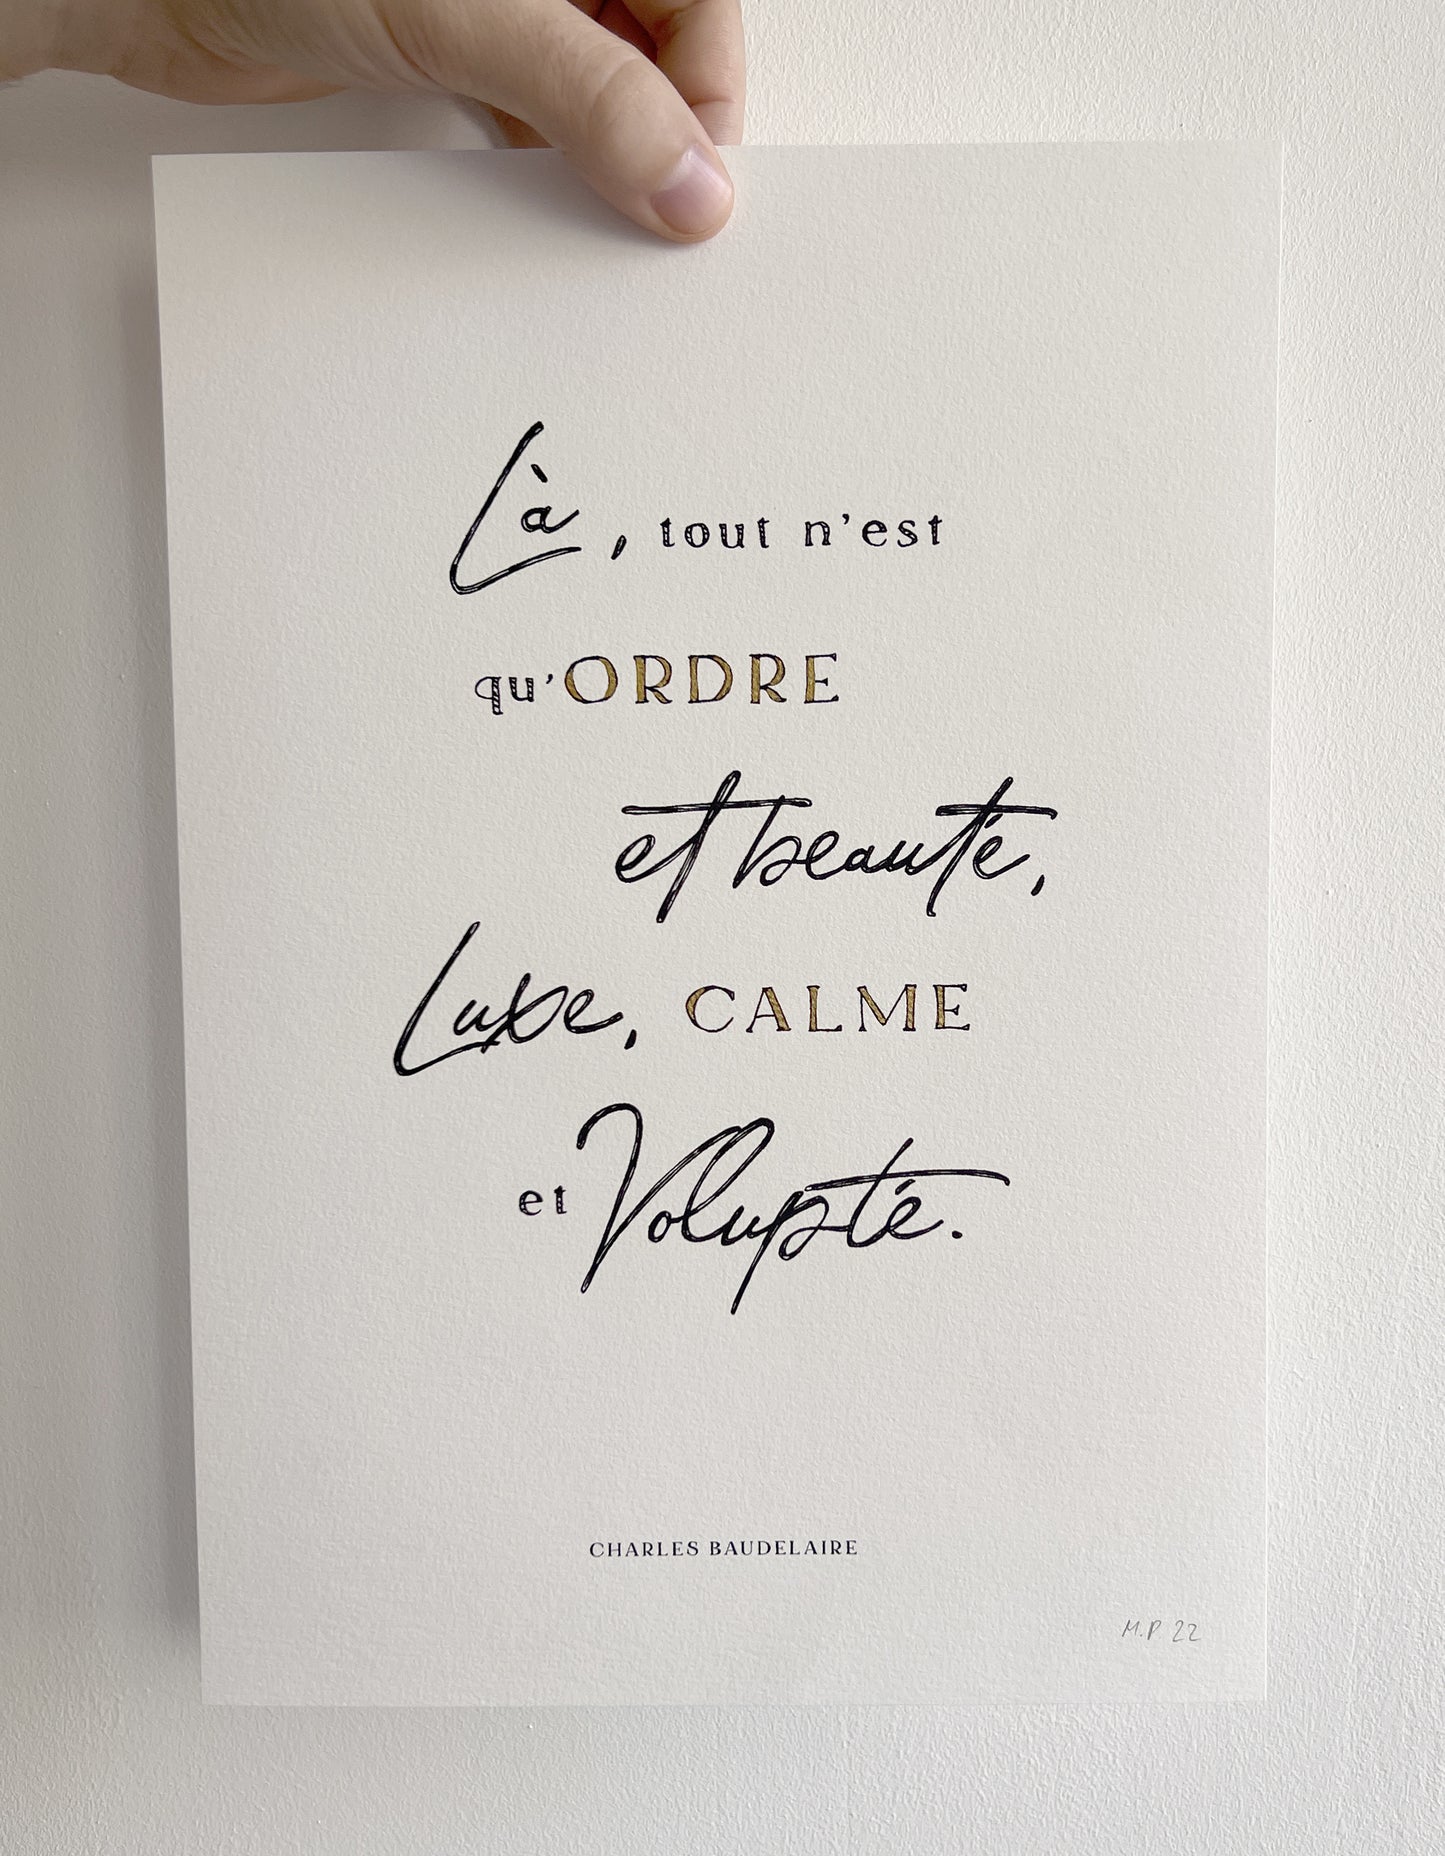 Là, tout n'est
qu'ORDRE
et beauté,
Luxe, CALME
et Volupté.
CHARLES BAUDELAIRE
M.P 22